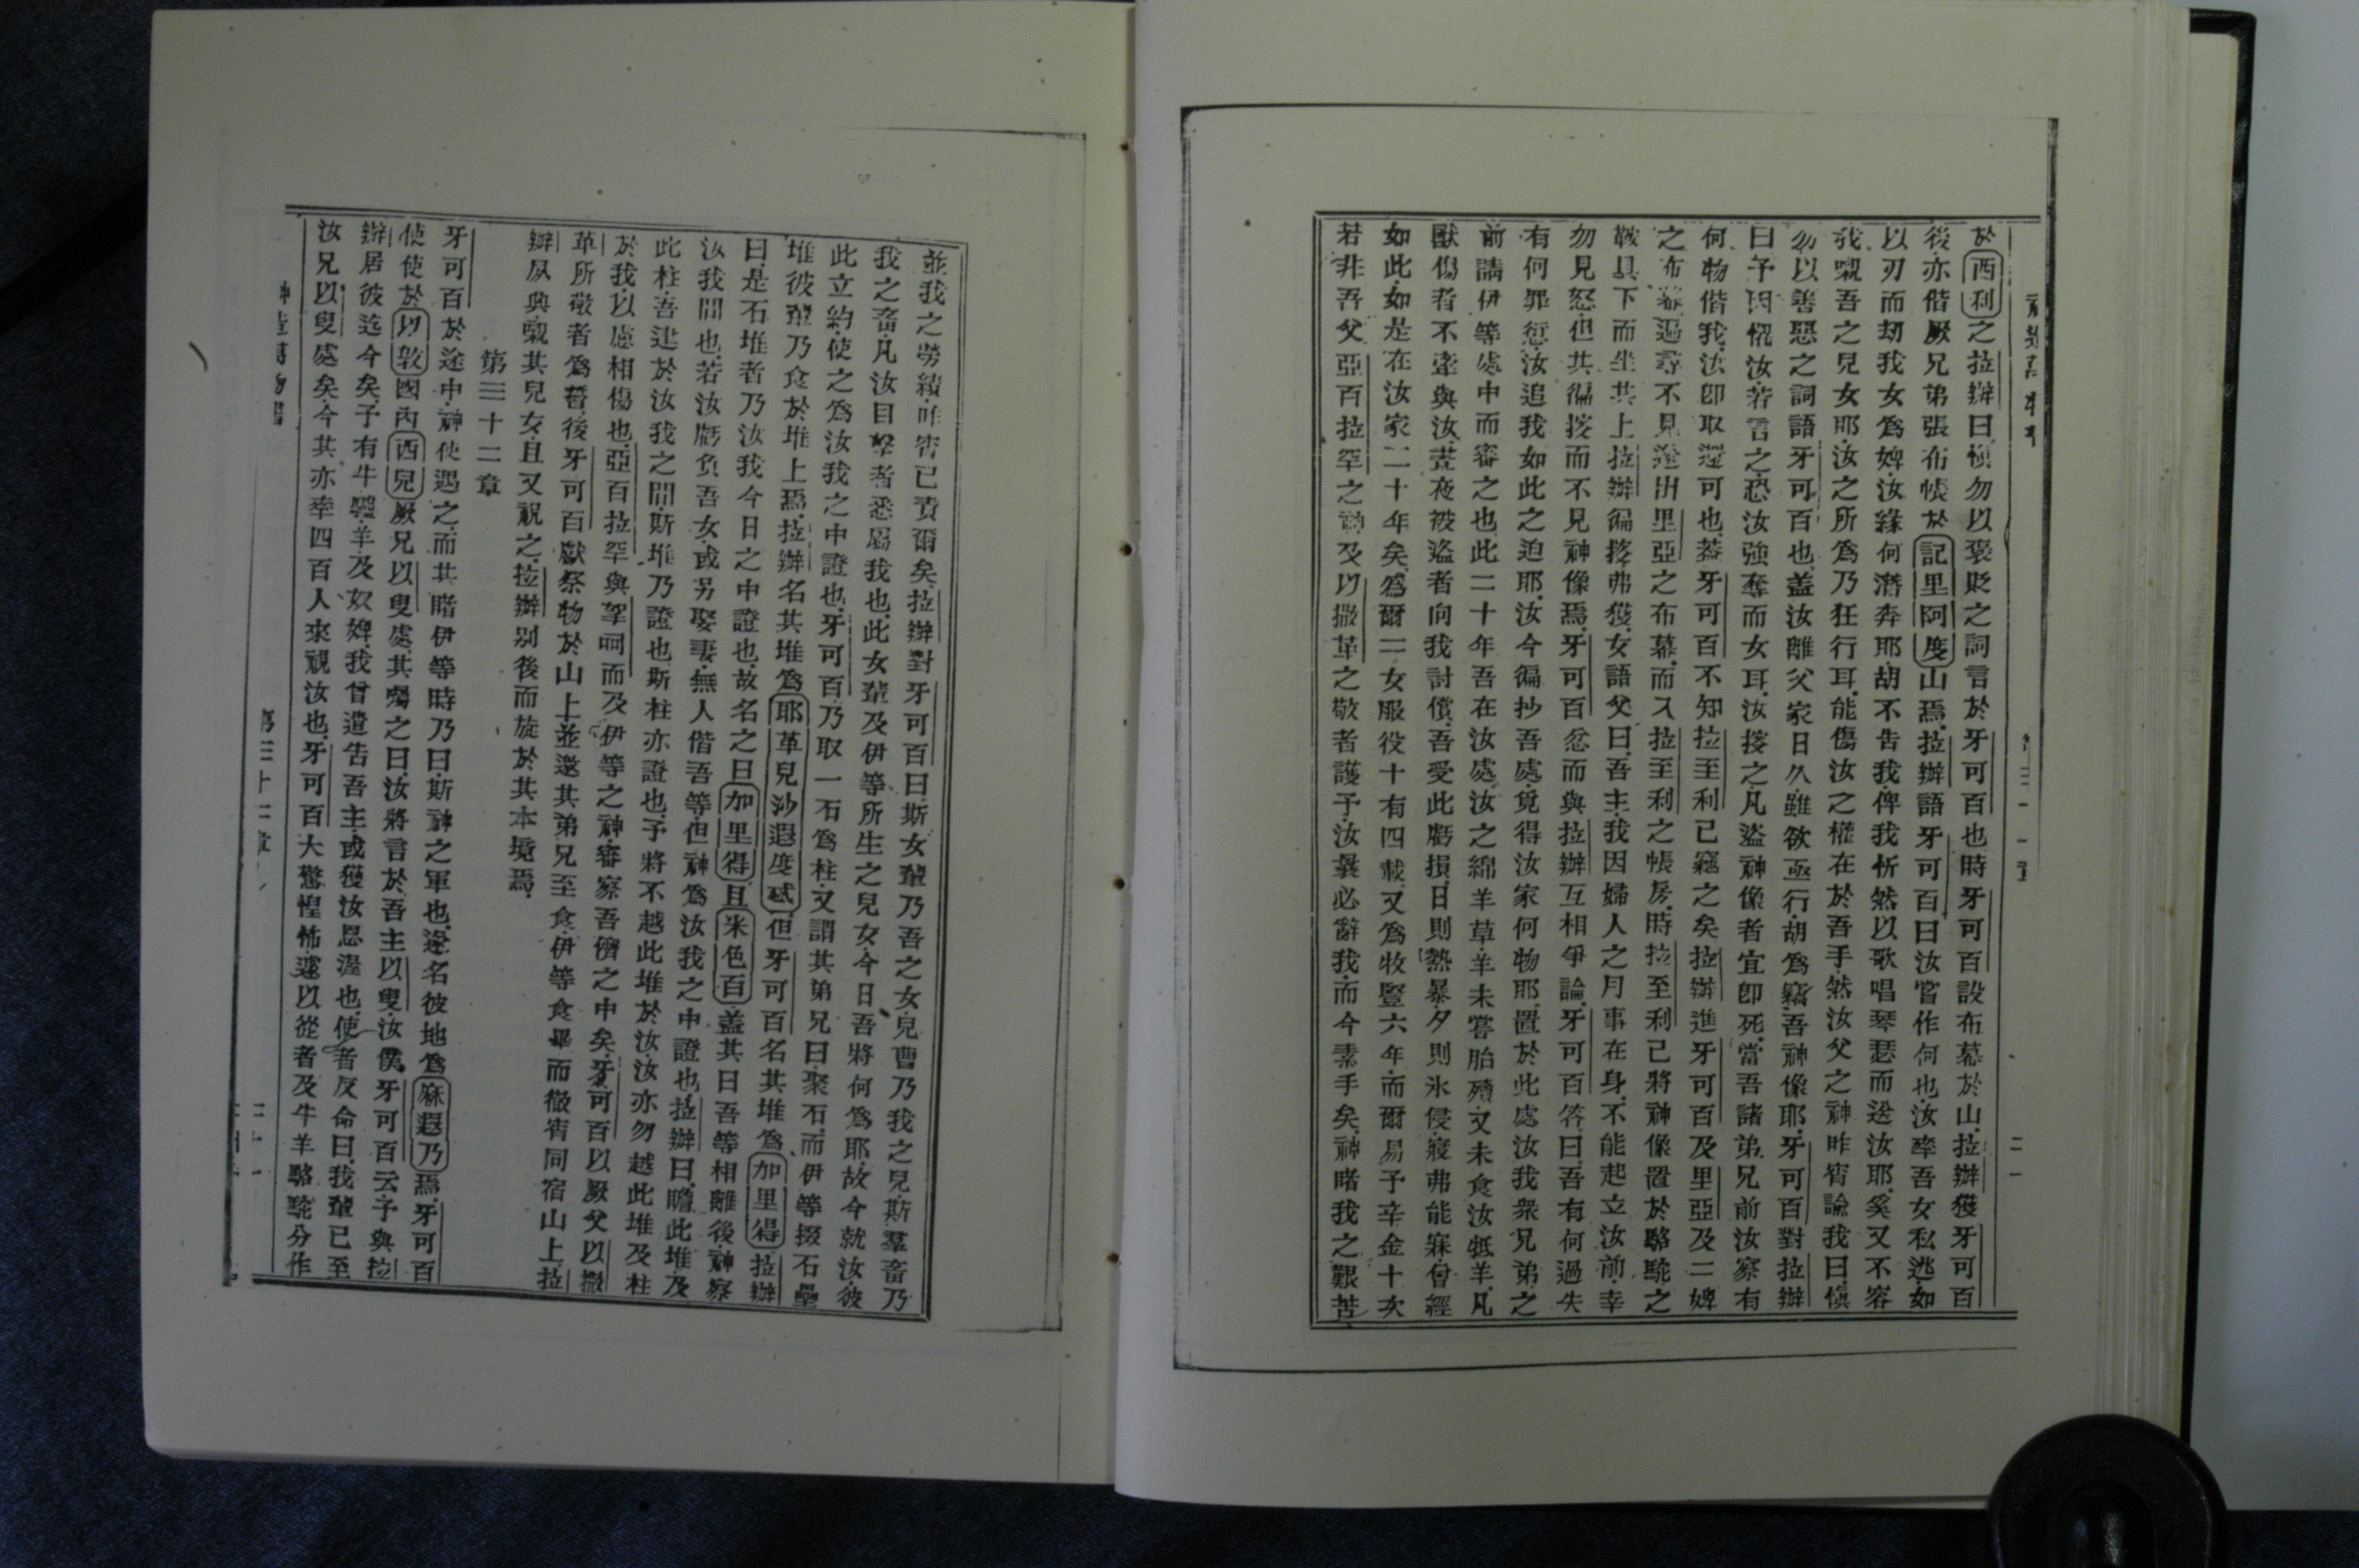 於西利之拉辦曰愼勿以褒貶之詞言於牙可百也時牙可百設布幕於山拉辦獲牙可百
後亦偕厥兄弟張布帳於記里阿度山焉拉辦語牙可百曰汝嘗作何也汝率吾女私逃如
以刃而刧我女爲婢汝緣何潛奔耶胡不告我俾我忻然以歌唱琴瑟而送汝耶奚又不容
我嚫吾之兒女耶汝之所爲乃狂行耳能傷汝之權在於吾手然汝父之神昨宵論我曰愼
勿以善惡之詞語牙可百也蓋汝離父家日久雖欲亟行胡爲竊吾神像耶牙可百對拉辦
曰予因慌汝若言之恐汝強奪而女耳汝搜之凡盜神像者宜卽死當吾諸弟兄前汝察有
何物偕我汝卽取還可也蓋牙可百不知拉至利已竊之矣拉辦進牙可百及里亞及二婢
之布幕遍尋不見遂出里亞之布幕而入拉至利之帳房時拉至利已將神像置於駱駝之
鞍具下而坐其上拉辦徧搜弗獲女語父曰吾主我因婦人之月事在身不能起立汝前幸
勿見怒但其徧搜而不見神像焉牙可百忿而與拉辦互相爭論牙可百答曰吾有何過失
有何罪愆汝追我如此之迫耶汝今徧抄吾處覓得汝家何物耶置於此處汝我衆兄弟之
前請伊等處中而審之也此二十年吾在汝處汝之綿羊草羊未嘗胎殰又未食汝牴羊凡
獸傷者不牽與汝晝夜被盜者向我討償吾受此虧損日則熱暴夕則氷侵寢弗能寐曾經
如此如是在汝家二十年矣爲爾二女服役十有四載又爲牧豎六年而爾易予辛金十次
若非吾父亞百拉罕之神及以撒革之敬者護予汝曩必辭我而今素手矣神睹我之艱苦
並我之勞績昨宵已責爾矣拉辦對牙可百曰斯女輩乃吾之女兒曹乃我之兒斯羣畜乃
我之畜凡汝目擊者悉屬我也此女輩及伊等所生之兒女今日吾將何爲耶故今就汝彼
此立約使之爲汝我之中證也牙可百乃取一石爲柱又謂其弟兄曰聚石而伊等掇石壘
堆彼輩乃食於堆上焉拉辦名其堆爲耶革兒沙遐度忒但牙可百名其堆爲加里得拉辦
曰是石堆者乃汝我今日之中證也故名之曰加里得且米色百蓋其曰吾等相離後神察
汝我間也若汝虧負吾女或另娶妻無人偕吾等但神爲汝我之中證也拉辦曰瞻此堆及
此柱吾建於汝我之間斯堆乃證也斯柱亦證也予將不越此堆於汝汝亦勿越此堆及柱
於我以慮相傷也亞百拉罕與拏呵而及伊等之神審察吾儕之中矣牙可百以厥父以撒
革所敬者爲誓後牙可百獻祭物於山上並邀其弟兄至食伊等食畢而徹宵同宿山上拉
辦夙興嚫其兒女且又祝之拉辦別後而旋於其本境焉
第三十二章
牙可百於途中神使遇之而其睹伊等時乃曰斯神之軍也遂名彼地爲麻遐乃焉牙可百
使使於以敦國內西兒厥兄以叟處其囑之曰汝將言於吾主以叟汝僕牙可百云予與拉
辦居彼迄今矣予有牛驢羊及奴婢我曾遣告吾主或獲汝恩渥也使者反命曰我輩已至
汝兄以叟處矣今其亦率四百人來覜汝也牙可百大驚惶怖遽以從者及牛羊駱駝分作
神造萬物書
第三十二章